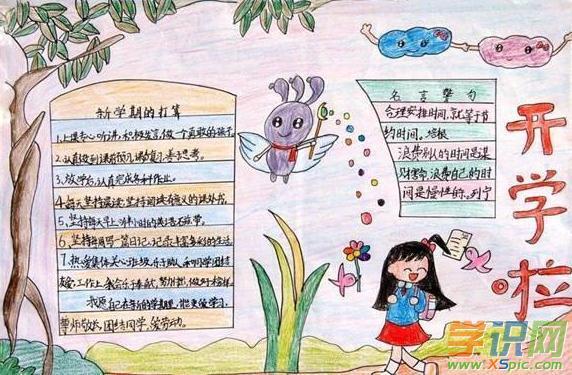 新学期的打算
1.上课专心听讲,积极发言,做一个勇敢的孩子。
2.认真做到课前预习,课后复习,善于思考。
3.放学后,认真完成各科作业。
4.每天坚持晨读,坚持阅读有益的课外书。
5.坚持每天早上听半小时的英语磁带。
6.坚持每周写一篇日记,记录丰富多彩的生活。
7.热爱集体,关心班级,乐于助人,和同学团结
友爱,工作上
我愿在本新的学期里,能更爱学习,
尊师敬长,团结同学,爱劳动。
名言警句
合理安排时间,就等于节
约时间。培根
浪费别人的时间是谋
财害命,浪费自己的时
间是慢性的。列宁
开学啦
学识网
www.XSpic.com